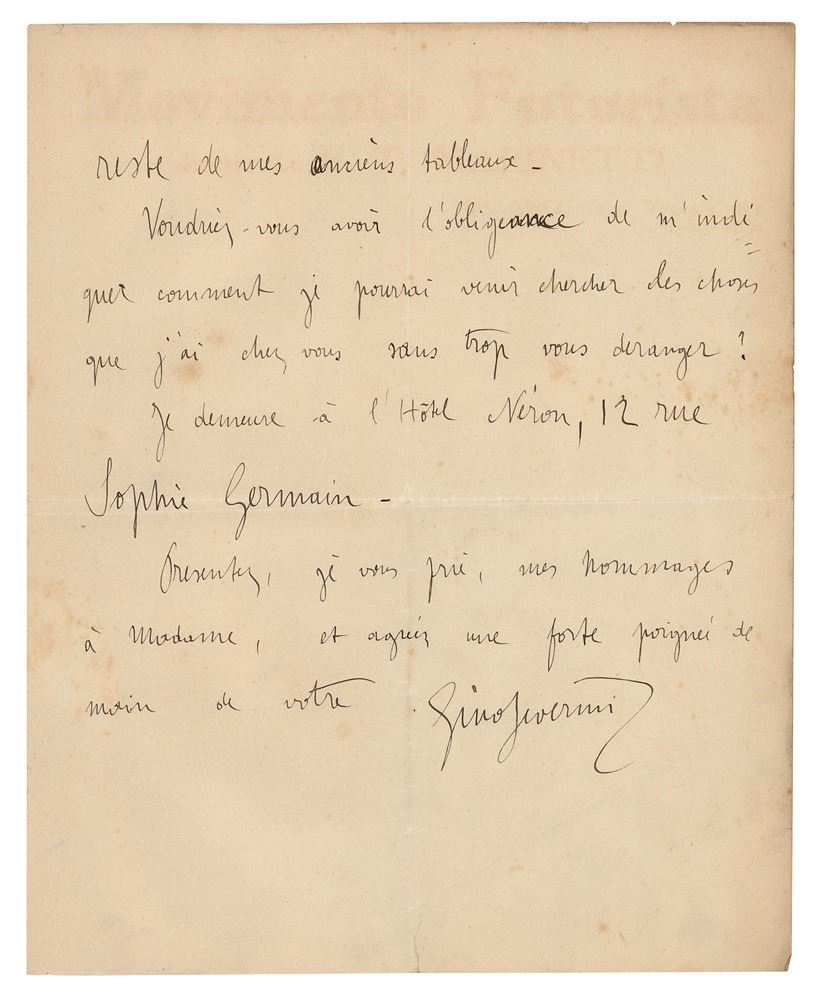 Movimento Futurista
reste de mes anciens tableaux -
Voudriez-vous avoir l'obligeance de m'indi=
quer comment je pourrai venir chercher les choses
que j'ai chez vous sans trop vous deranger ?
Je demeure à l'Hôtel Néron, 12 rue
Sophie Germain -
Presentez, je vous prie, mes hommages
à Madame, et agréez une forte poignée de
main de votre Gino Severini